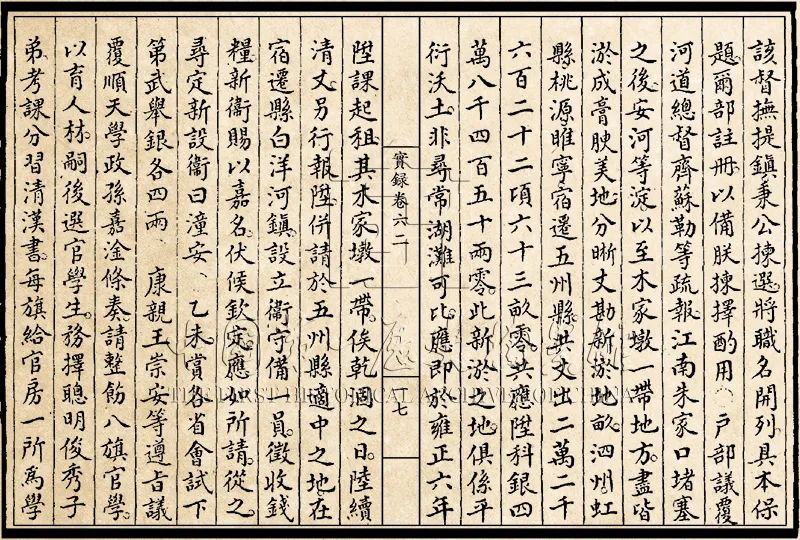 該督撫提鎮秉公揀選。將職名開列具本保
題。爾部註冊。以備朕揀擇酌用○戶部議覆
河道總督齊蘇勒等疏報江南朱家口堵塞
之後。安河等淀以至木家墩一帶地方。盡皆
淤成膏腴美地。分晰丈勘新淤地畝。泗州虹
縣桃源睢寧宿遷五州縣。共丈出二萬二千
六百二十二項六十三畝零。共應陞科銀四
萬八千四百五十兩零。此新淤之地。俱係平
衍沃土。非尋常湖灘可比。應即於雍正六年
實錄卷六二
十七
陞課起租。其木家墩一帶。俟乾涸之日。陸續
清丈。另行報陞。併請於五州縣適中之地。在
宿遷縣白洋河鎮。設立衛守備一員。徵收錢
糧。新衛賜以嘉名。伏候欽定。應如所請。從之。
尋定新設衛曰潼安、乙未。賞各省會試下
第武舉銀各四兩、康親王崇安等遵旨議
覆順天學政孫嘉淦條奏。請整飭八旗官學。
以育人材。嗣後選官學生。務擇聰明俊秀子
弟。考課分習清漢書。每旗給官房一所為學
THE FIRST HISTORICAL ARCHIVES OF CHINA